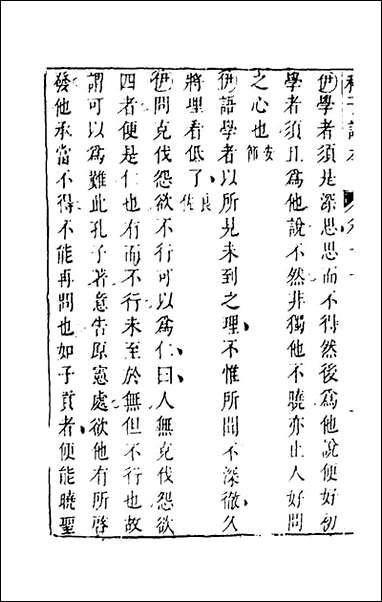 程子詳本
伊學者須是深思思而不得然後爲他說便好初
學者須且爲他說不然非獨他不曉亦止人好問
之心也安節
伊語學者以所見未到之理不惟所聞不深徹久
將理看低了良佐
伊問克伐怨欲不行可以爲仁曰人無克伐怨欲
四者便是仁也有而不行未至於無但不行也故
謂可以爲難此孔子著意告原憲處欲他有所啓
發他承當不得不能再問也如子貢者便能曉聖